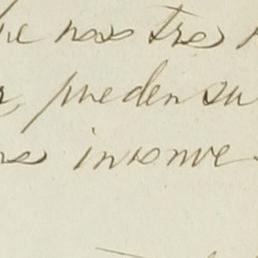 ue nosotros
pueden su
inconve